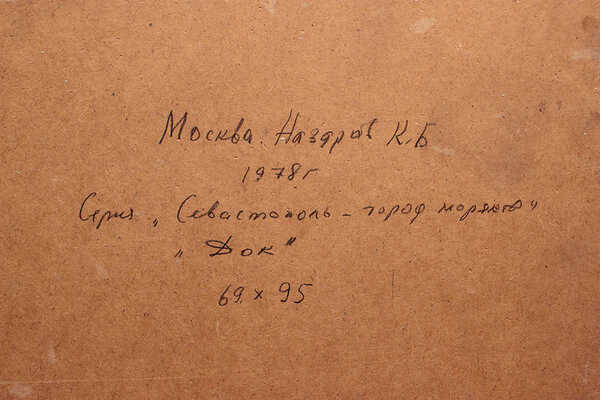 Москва. Наздров К.Б
1978г
Серия „Севастополь - город моряков"
„Док"
69 х 95